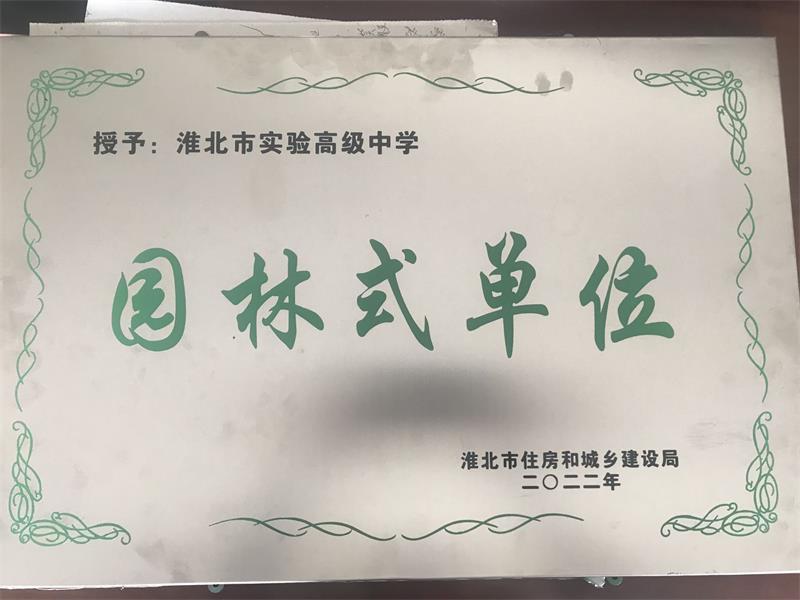 授予：淮北市实验高级中学
园林式单位
淮北市住房和城乡建设局
二〇二二年